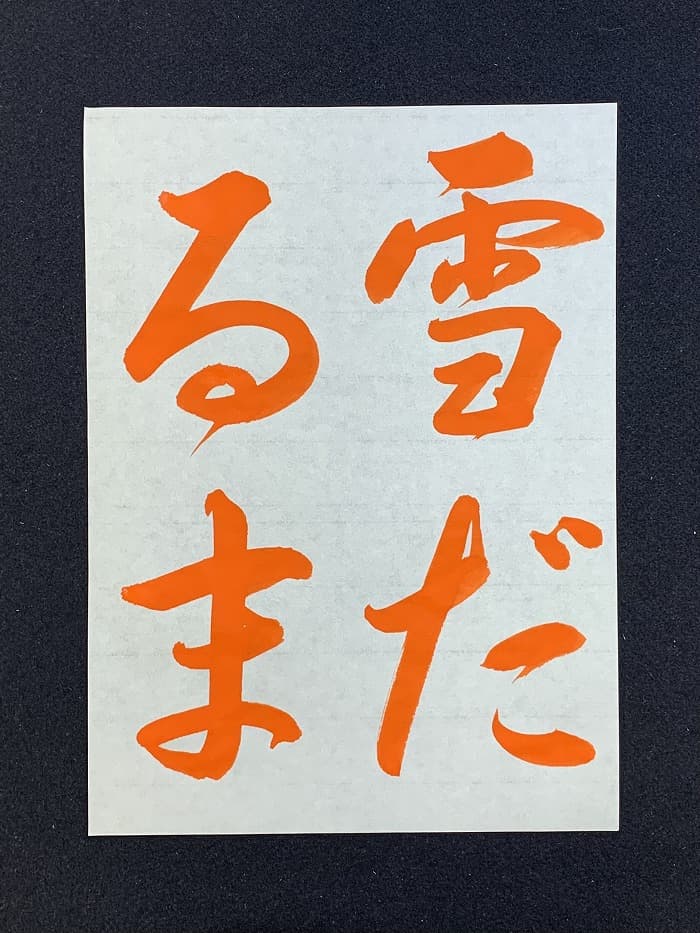 雪だ
るま